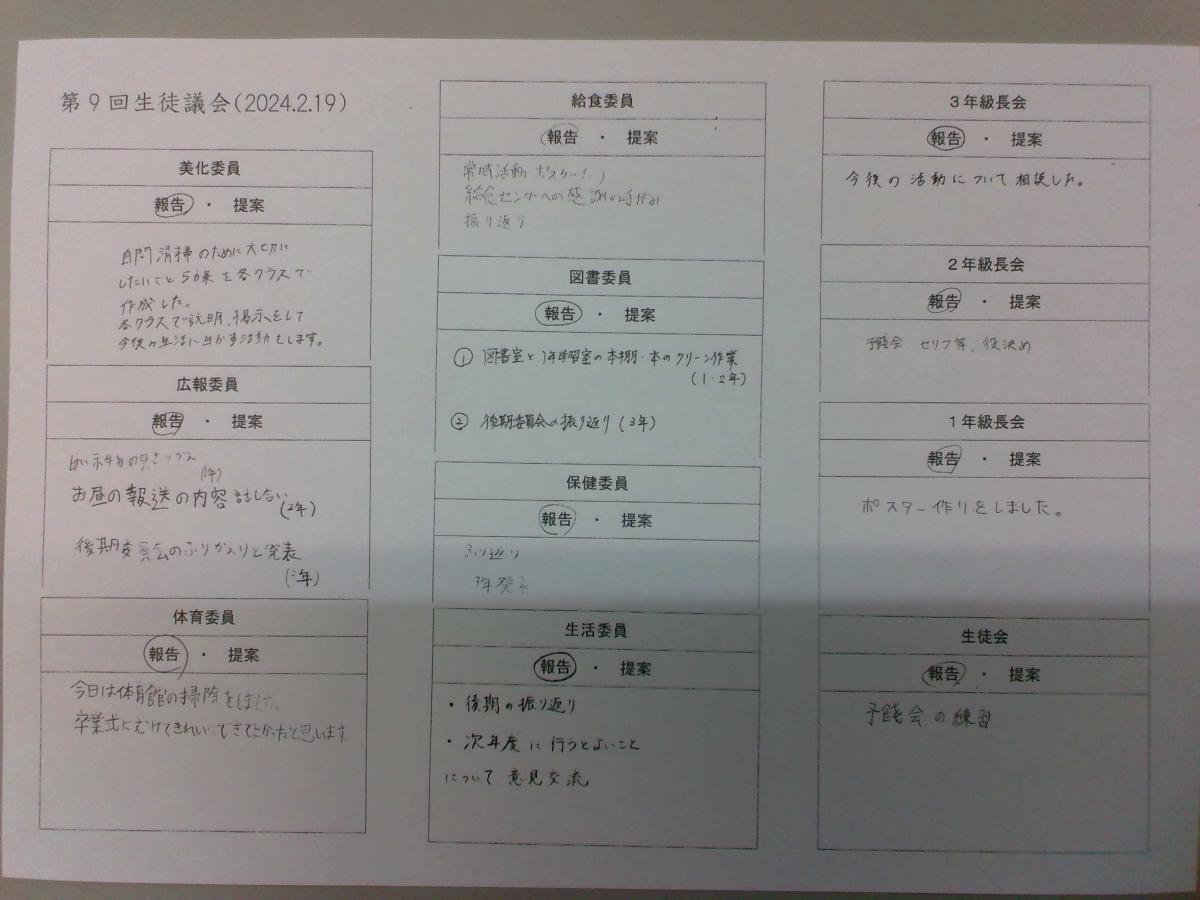 第9回生徒議会(2024.2.19)
美化委員
報告 ・ 提案
自問清掃のために大切に
したいこと5カ条を各クラスで
作成した。
各クラスで説明、掲示をして
今後の生活に生かす活動をします。
広報委員
報告 ・ 提案
(1年)
お昼の報送の内容話し合い
(2年)
後期委員会のふりかえりと発表
(3年)
体育委員
報告 ・ 提案
今日は体育館の掃除をしました。
卒業式にむけてきれいにできてよかったと思います。
給食委員
報告 ・ 提案
常時活動 ポスター
給食センターへの感謝の手がみ
振り返り
図書委員
報告 ・ 提案
① 図書室と1年学習室の本棚・本のクリーン作業
(1・2年)
② 後期委員会の振り返り(3年)
保健委員
報告 ・ 提案
ふり返り
3年発表
生活委員
報告 ・ 提案
・後期の振り返り
・次年度に行うとよいこと
について意見交流
3年級長会
報告 ・ 提案
今後の活動について相談した。
2年級長会
報告 ・ 提案
予餞会 セリフ等、役決め
1年級長会
報告 ・ 提案
ポスター作りをしました。
生徒会
報告 ・ 提案
予餞会の練習